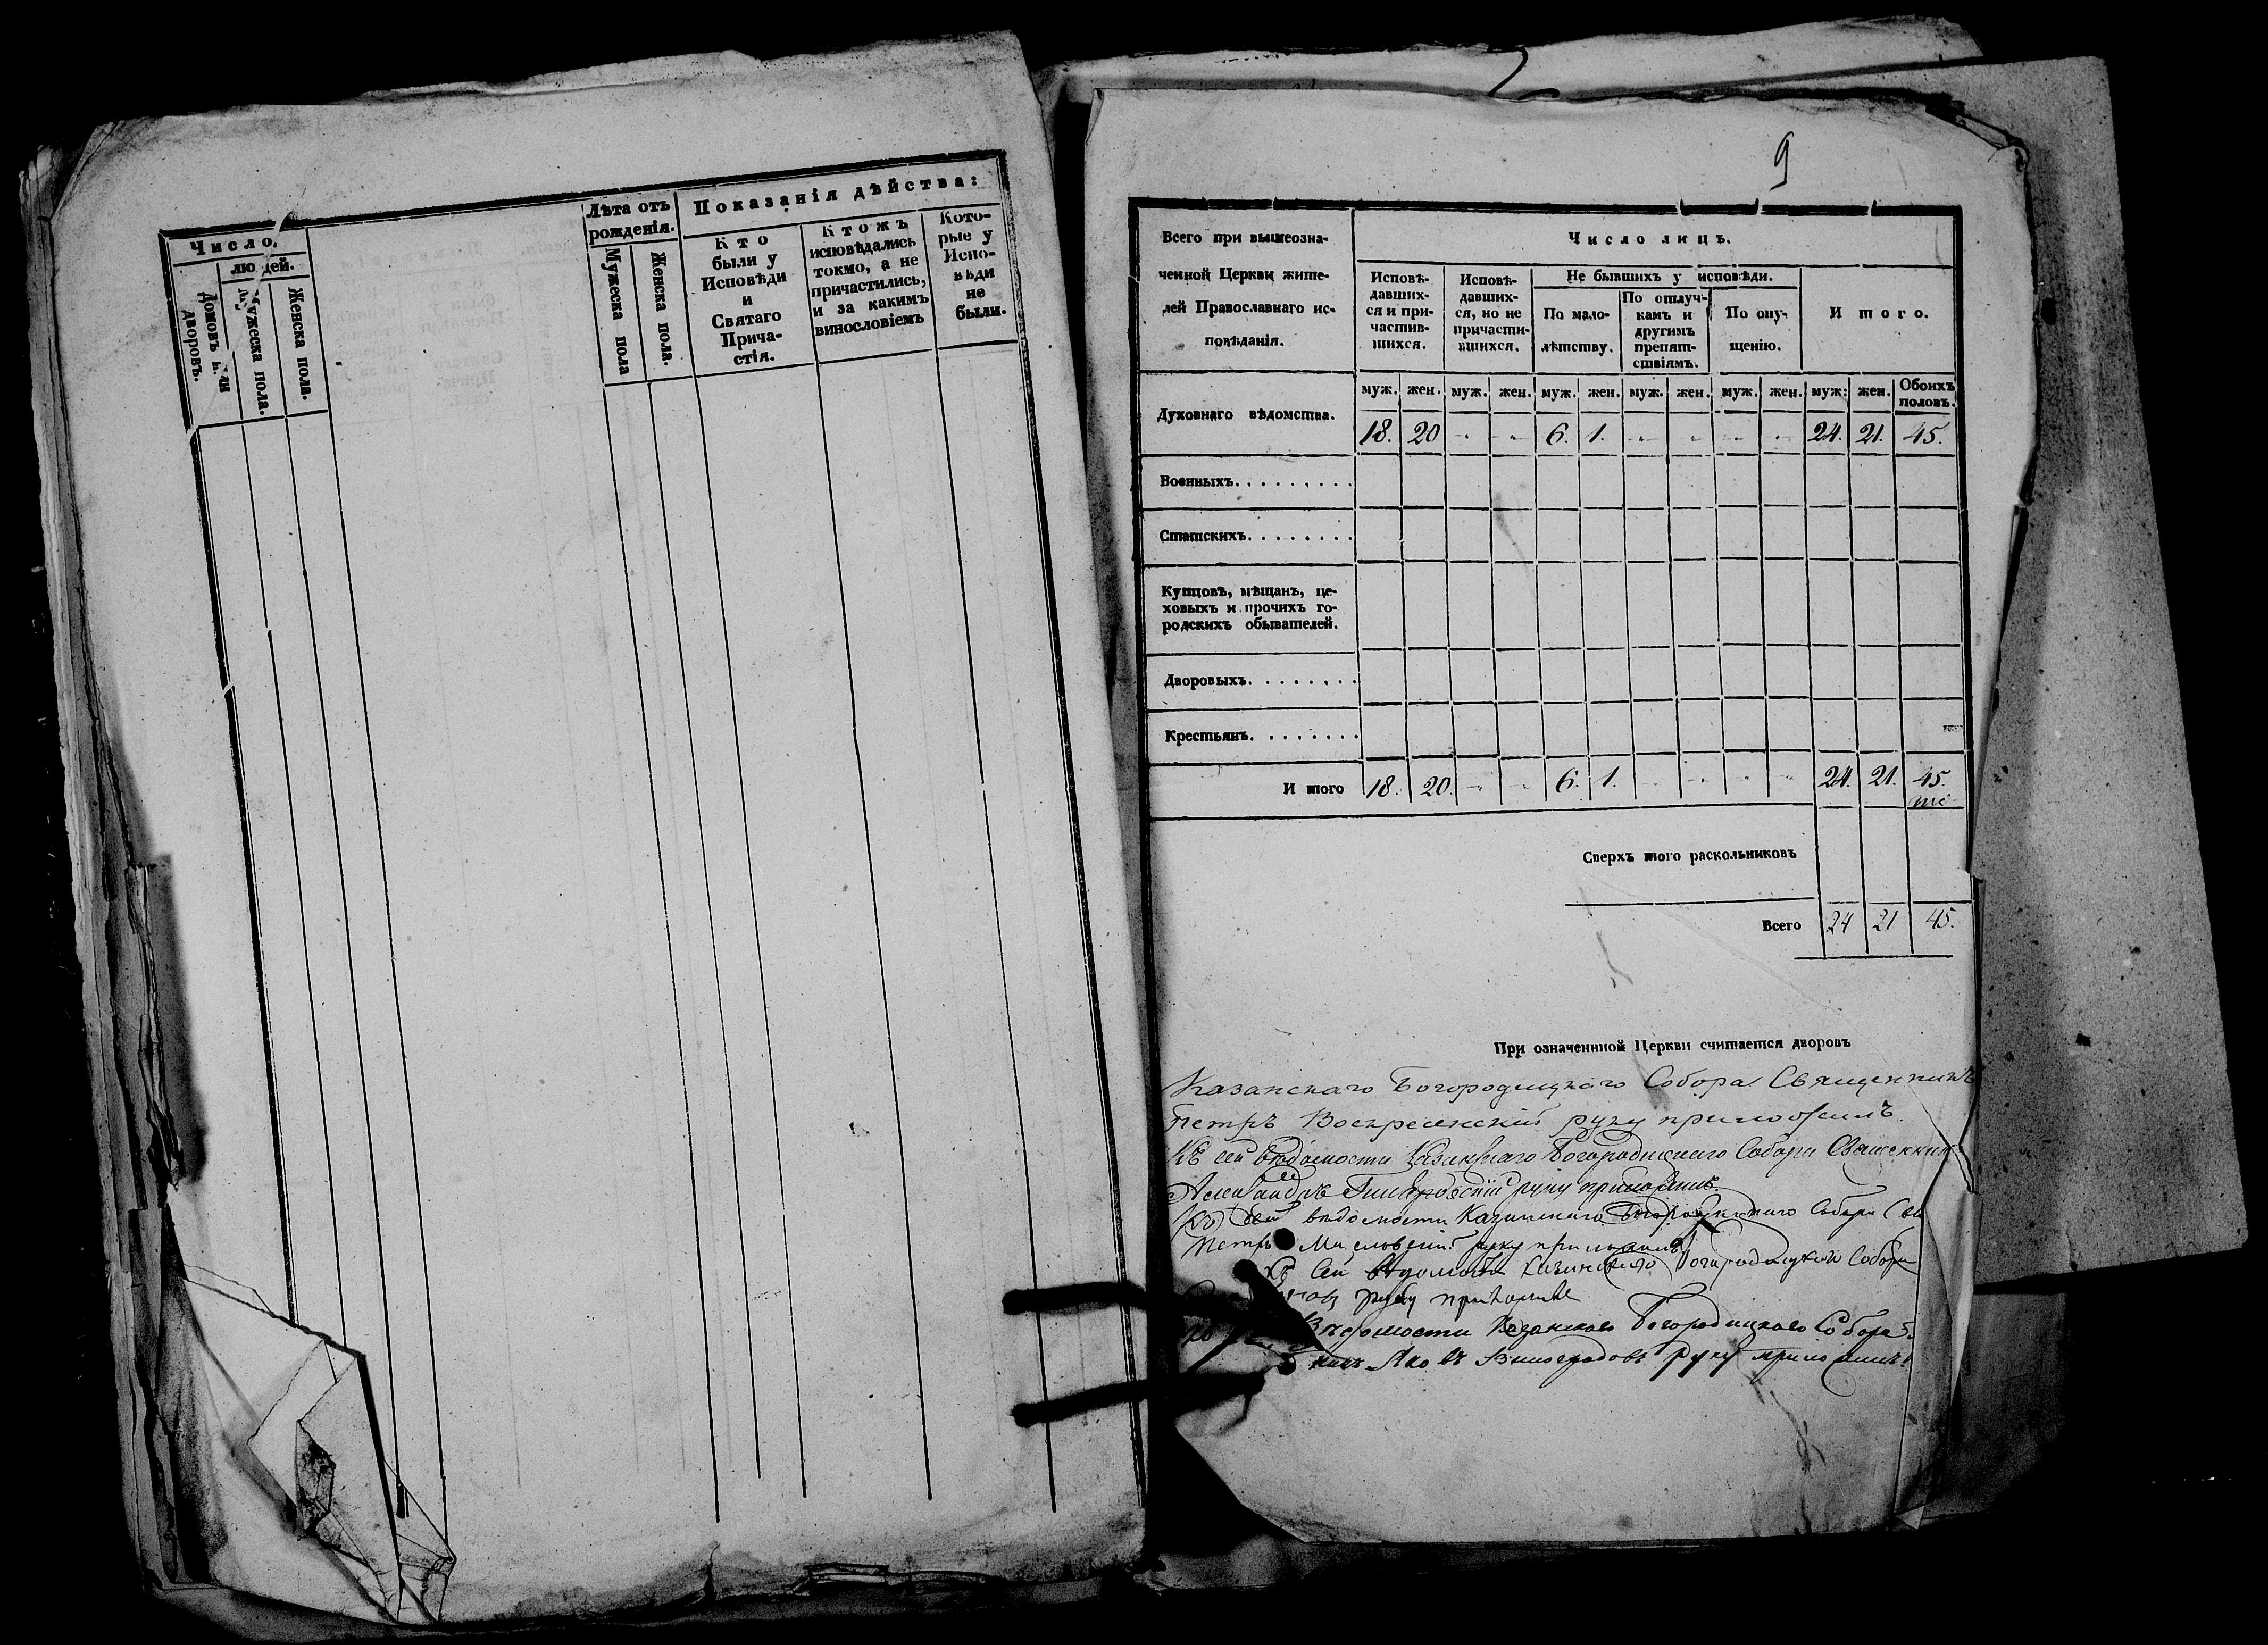 Число
людей.
Домовъ или дворовъ.
Мужеска пола.
Женска пола.
Лѣта отъ рожденія.
Мужеска пола
Женска пола.
Показанія дѣйства:
Кто
были у
Исповѣди
и
Святаго
Прича-
стія.
Ктожъ
исповѣдались
токмо, а не
причастились,
и за какимъ
винословіемъ
Кото-
рые у
Испо-
вѣди
не
были.
9
Всего при вышеозна-
ченной Церкви жите-
лей Православнаго ис-
повѣданія.
Число лицъ.
Исповѣ-
давших-
ся и при-
частив-
шихся.
Исповѣ-
давших-
ся, но не
причасти-
вшихся.
Не бывшихъ у исповѣди.
По мало-
лѣтству.
По отлуч-
камъ и
другимъ
препят-
ствіямъ.
По опу-
щенію.
Итого.
муж. жен. муж. жен. муж. жен. муж. жен. муж. жен. муж: жен. Обоихъ половъ.
Духовнаго вѣдомства. 18. 20 - - 6. 1. - - - - 24. 21. 45.
Военныхъ.........
Статскихъ........
Купцовъ, мѣщанъ, це-
ховыхъ и прочихъ го-
родскихъ обывателей.
Дворовыхъ.......
Крестьянъ.......
Итого 18. 20. - - 6. 1. - - - - 24. 21. 45.
Сверхъ того раскольниковъ
Всего 24 21 45.
При означеннной Церкви считается дворовъ
Казанскаго Богородицкаго Собора Священникъ
Петръ Воскресенскій руку приложилъ
Къ сей вѣдомости Казанскаго Богородицкаго Собора Священникъ
руку приложилъ.
сей вѣдомости Казанскаго Богородицкаго Собора
Петръ руку приложилъ
Къ сей вѣдомости Казанскаго Богородицкаго Собора
руку приложилъ
Вѣдомости Казанскаго Богородицкаго Собора
Яковъ Виноградовъ руку приложилъ.